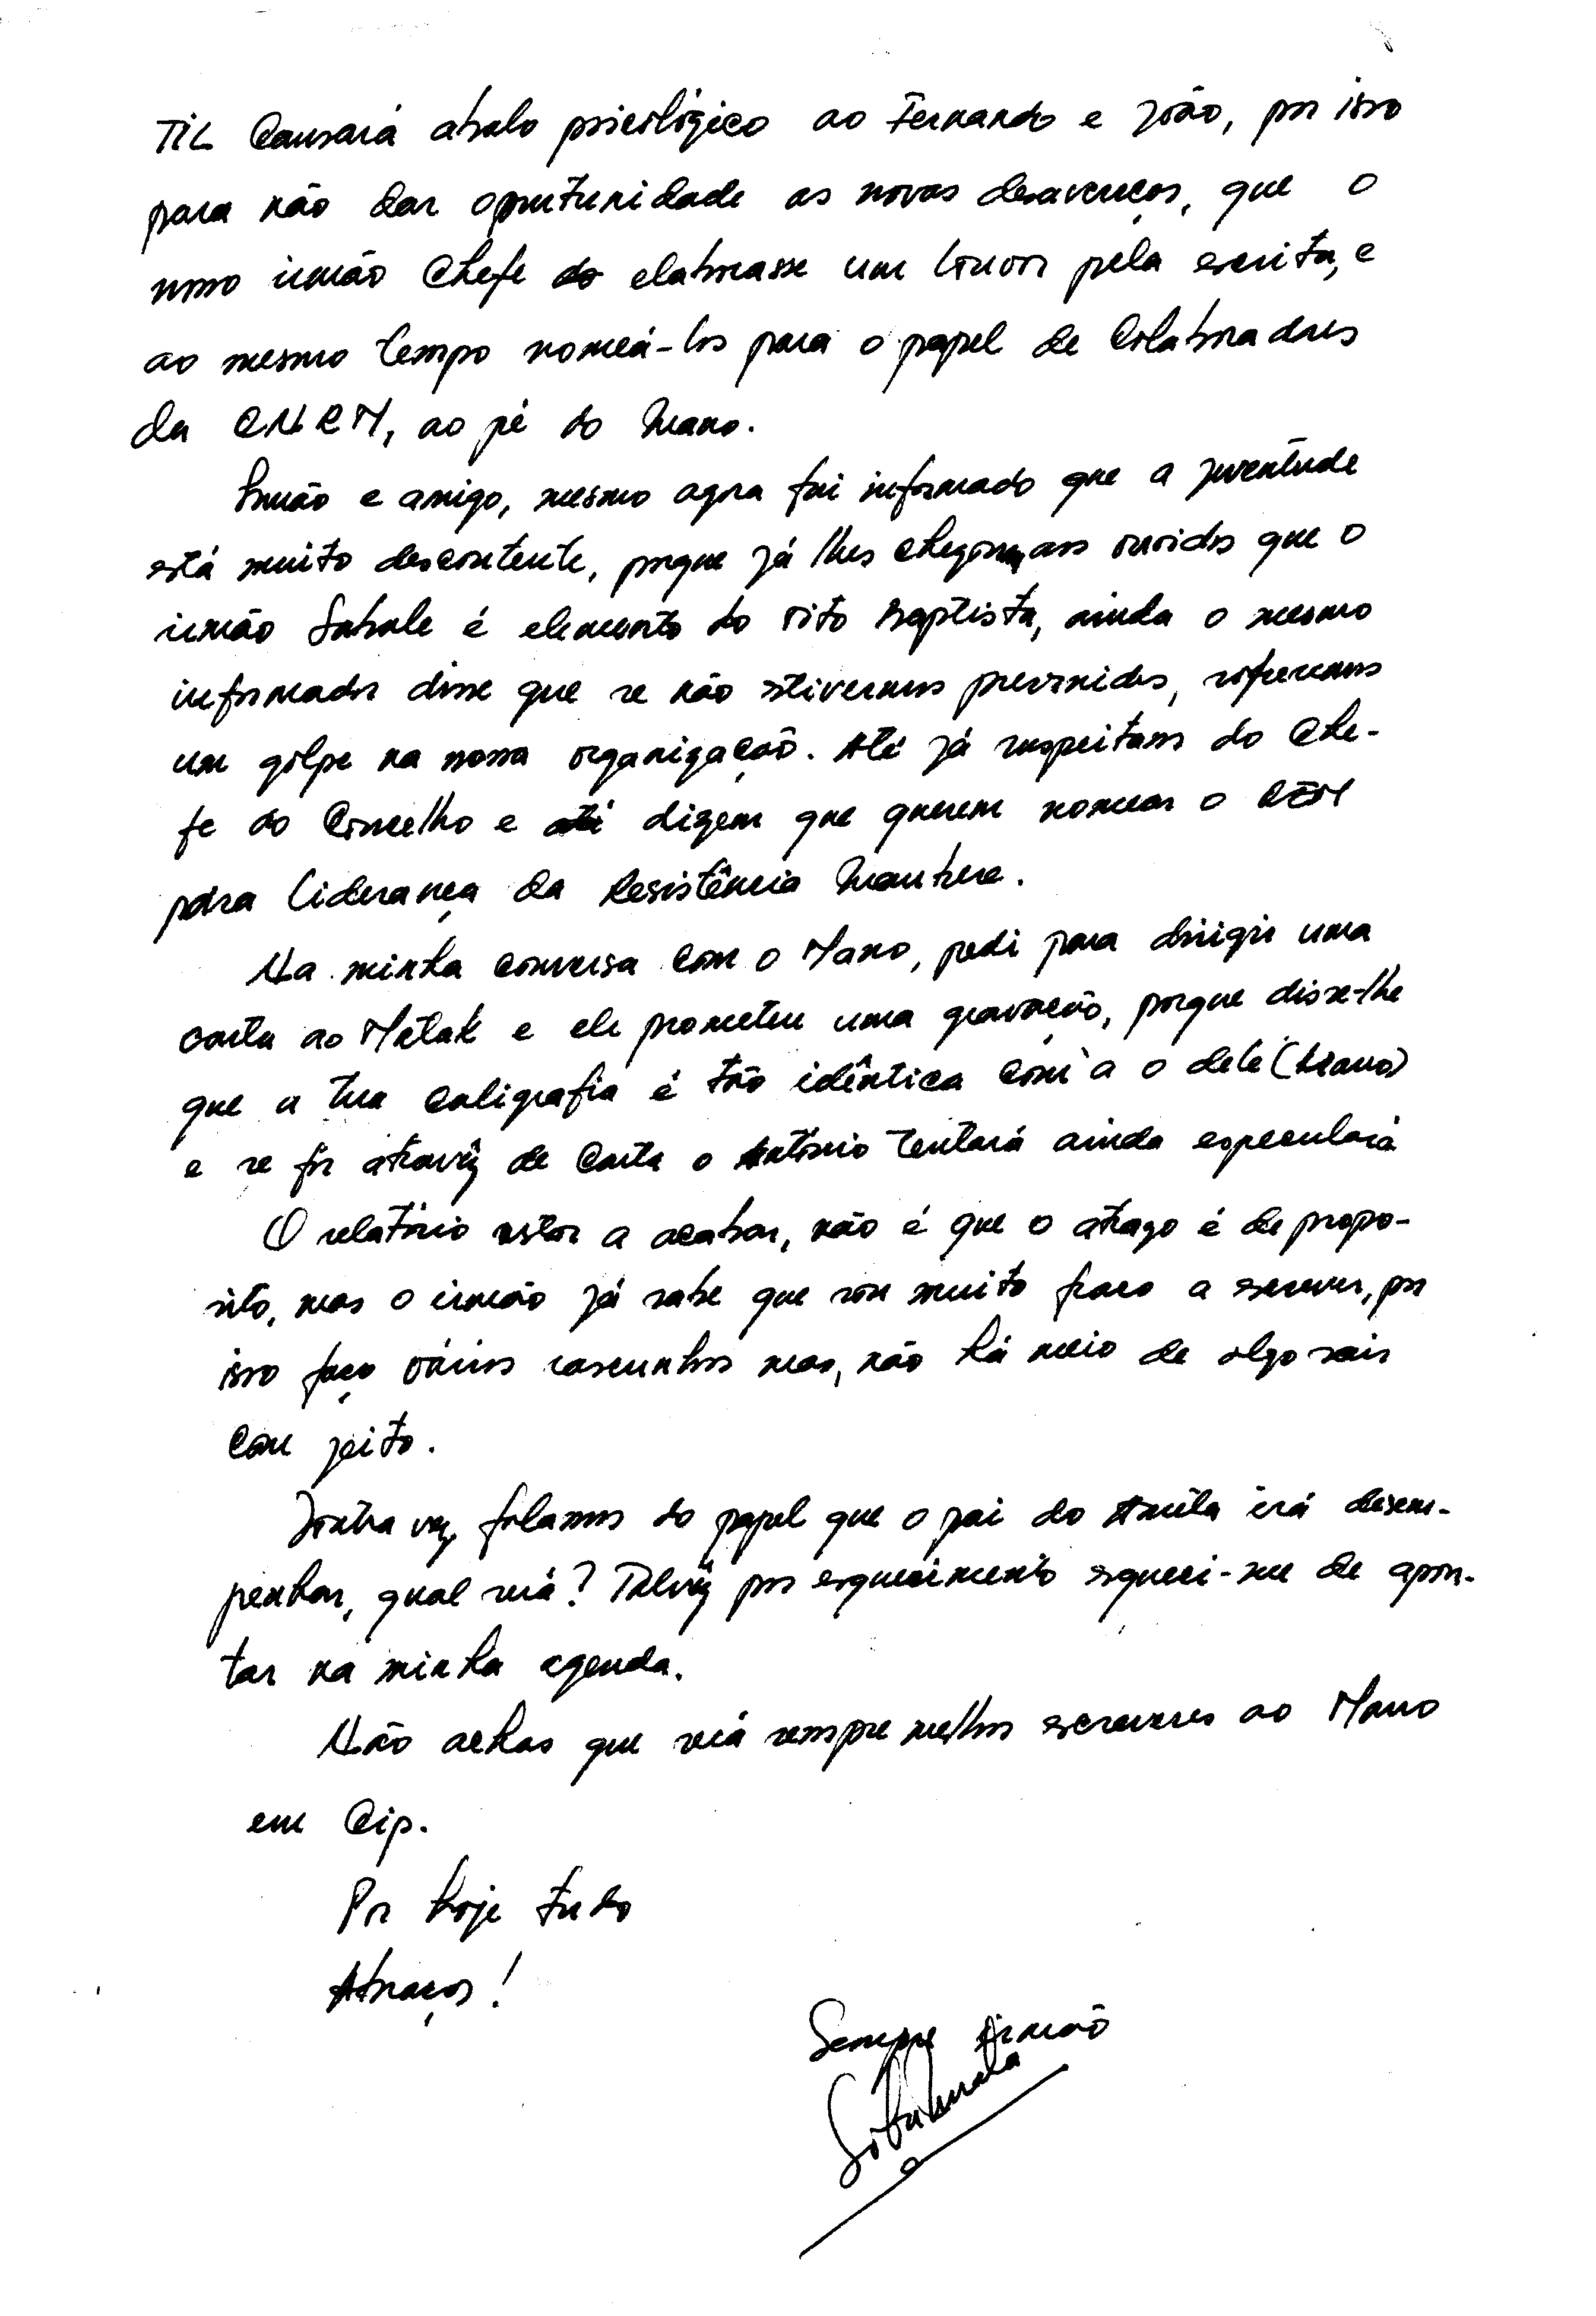 TIL Causará abalo psicológico ao Fernando e João, por isso
para não dar oportunidade as novas desavenças, que o
nosso irmão Chefe do elaborasse um louvor pela escrita, e
ao mesmo tempo nomeá-los para o papel de Colaboradores
da CNRM, ao pé do Mano.
Irmão e amigo, mesmo agora fui informado que a juventude
está muito descontente, porque já lhes chegou aos ouvidos que o
irmão Sabale é elemento do Tito Baptista, ainda o mesmo
informador disse que se não estivermos prevenidos, sofreremos
um golpe na nossa organização. Até já suspeitam do Che-
fe do Concelho e até dizem que querem nomear o
para liderança da Resistência Maubere.
Na minha conversa com o Mano, pedi para dirigir uma
carta ao Matak e ele prometeu uma gravação, porque disse-lhe
que a tua caligrafia é tão idêntica com a o dele (Mano)
e se for através de carta o António tentará ainda especulará
O relatório estou a acabar, não é que o atrazo é de propo-
sito, mas o irmão já sabe que sou muito fraco a escrever, por
isso faço vários rascunhos mas, não há meio de algo sair
com jeito.
Doutra vez, falamos do papel que o pai do irá desem-
penhar, qual será? Talvez por esquecimento esqueci-me de apon-
tar na minha agenda.
Não achas que será sempre melhor escreveres ao Mano
em Cip.
Por hoje tudo
Abraços!
Sempre irmão